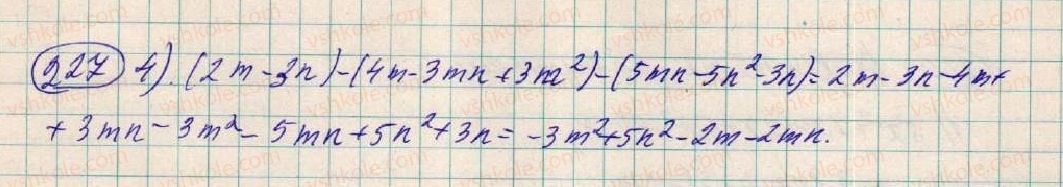 227 4). (2m-3n)-(4m-3mn+3m²)-(5mn-5n²-3n)=2m-3n-4m+
+3mn-3m²-5mn+5n²+3n=-3m²+5n²-2m-2mn.